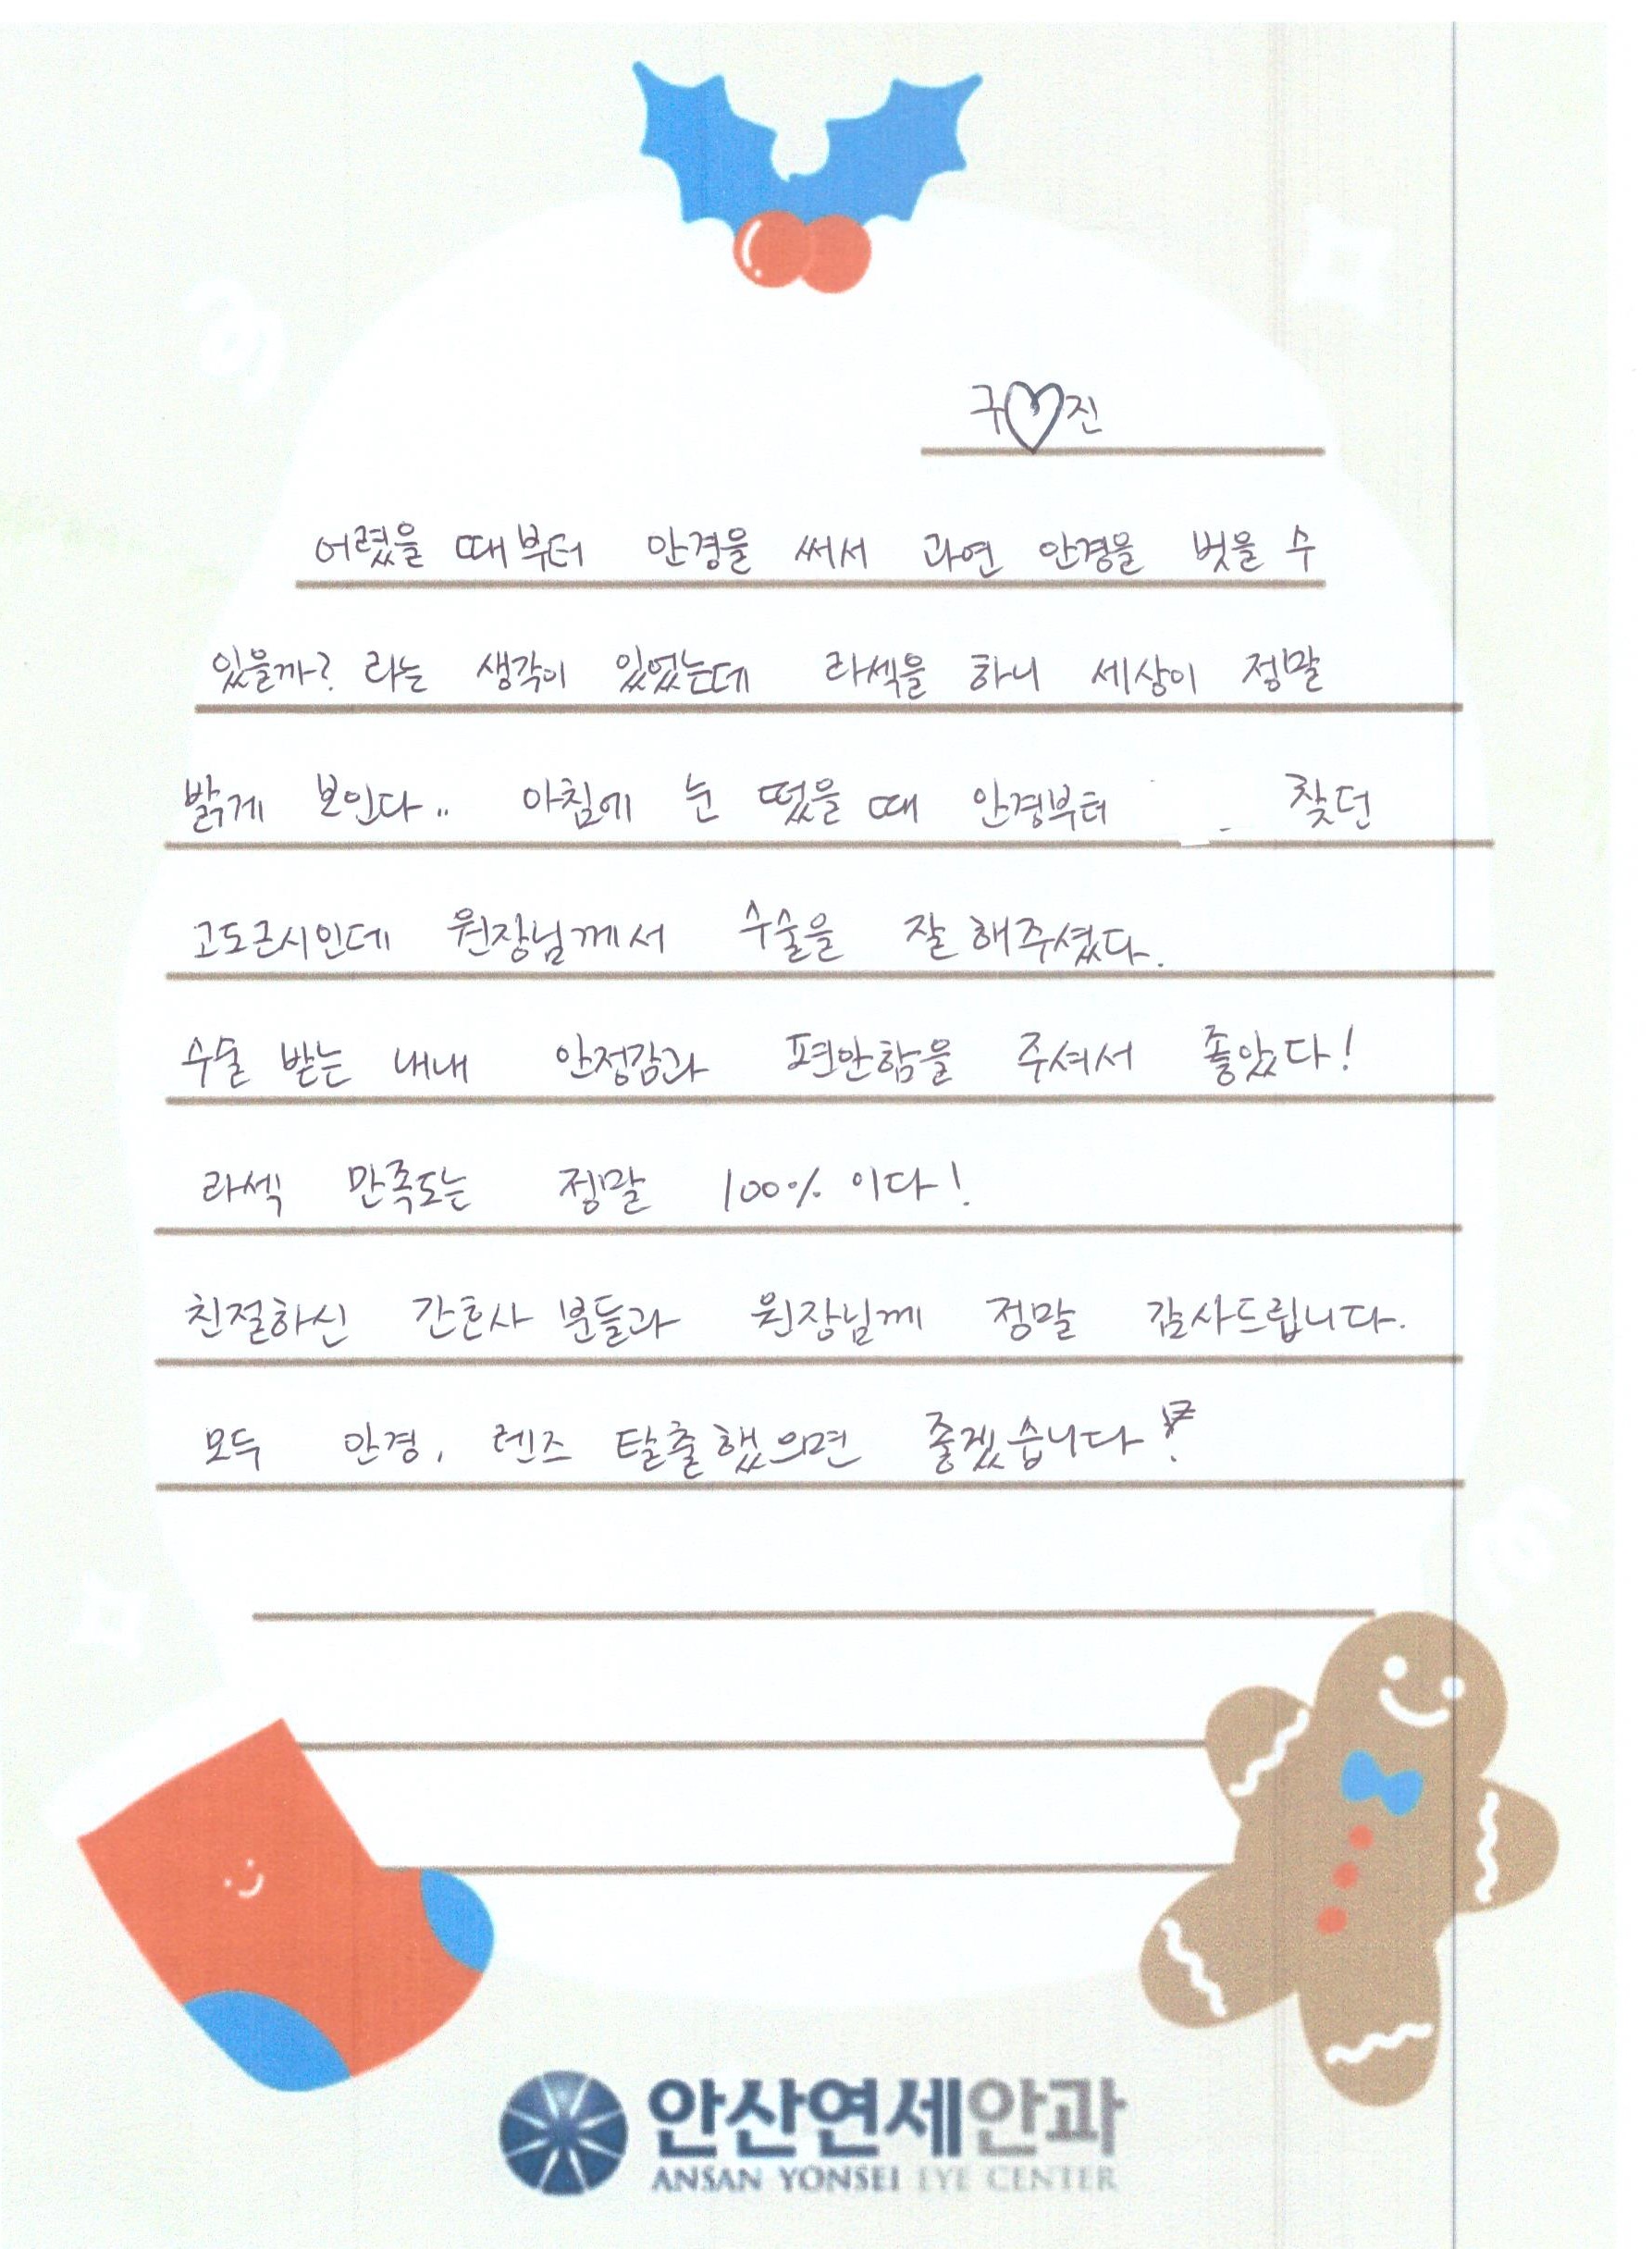 구♡진
어렸을 때부터 안경을 써서 과연 안경을 벗을 수
있을까? 라는 생각이 있었는데 라섹을 하니 세상이 정말
밝게 보인다.. 아침에 눈 떴을 때 안경부터 찾던
고도근시인데 원장님께서 수술을 잘 해주셨다.
수술 받는 내내 안정감과 편안함을 주셔서 좋았다!
라섹 만족도는 정말 100% 이다!
친절하신 간호사 분들과 원장님께 정말 감사드립니다.
모두 안경, 렌즈 탈출했으면 좋겠습니다!
안산연세안과
ANSAN YONSEI EYE CENTER